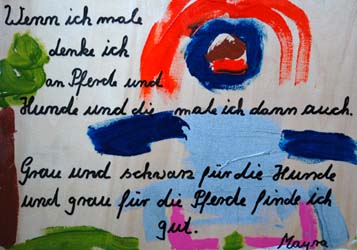 Wenn ich male
denke ich
an Pferde und
Hunde und die male ich dann auch.
Grau und schwarz für die Hunde
und grau für die Pferde finde ich
gut.
Mayra